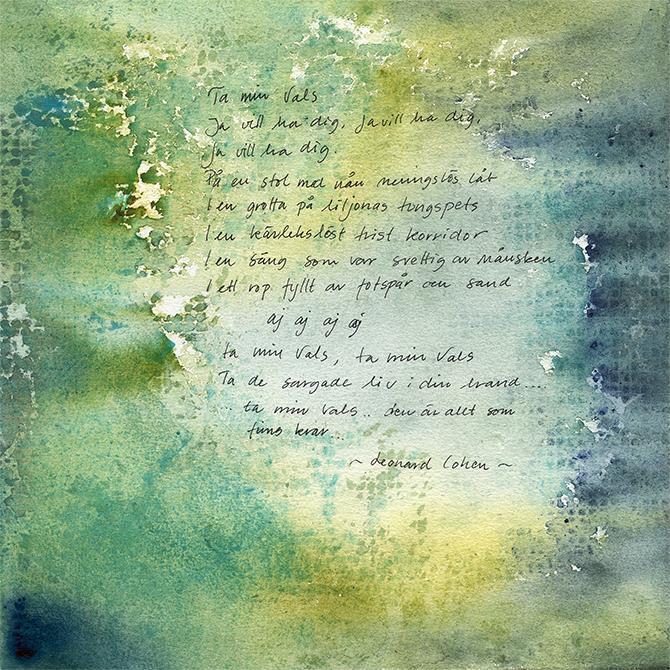 Ta min Vals
Ja vill ha dig, Ja vill ha dig,
Ja vill ha dig.
På en stol med nån meningslös låt
I en grotta på liljonas tungspets
I en kärlekslöst trist korridor
I en säng som var svettig av månsken
I ett rop fyllt av fotspår och sand
aj aj aj aj
ta min Vals, ta min Vals
Ta de sargade liv i din hand....
.. ta min Vals.. den är allt som
finns kvar...
~ Leonard Cohen ~